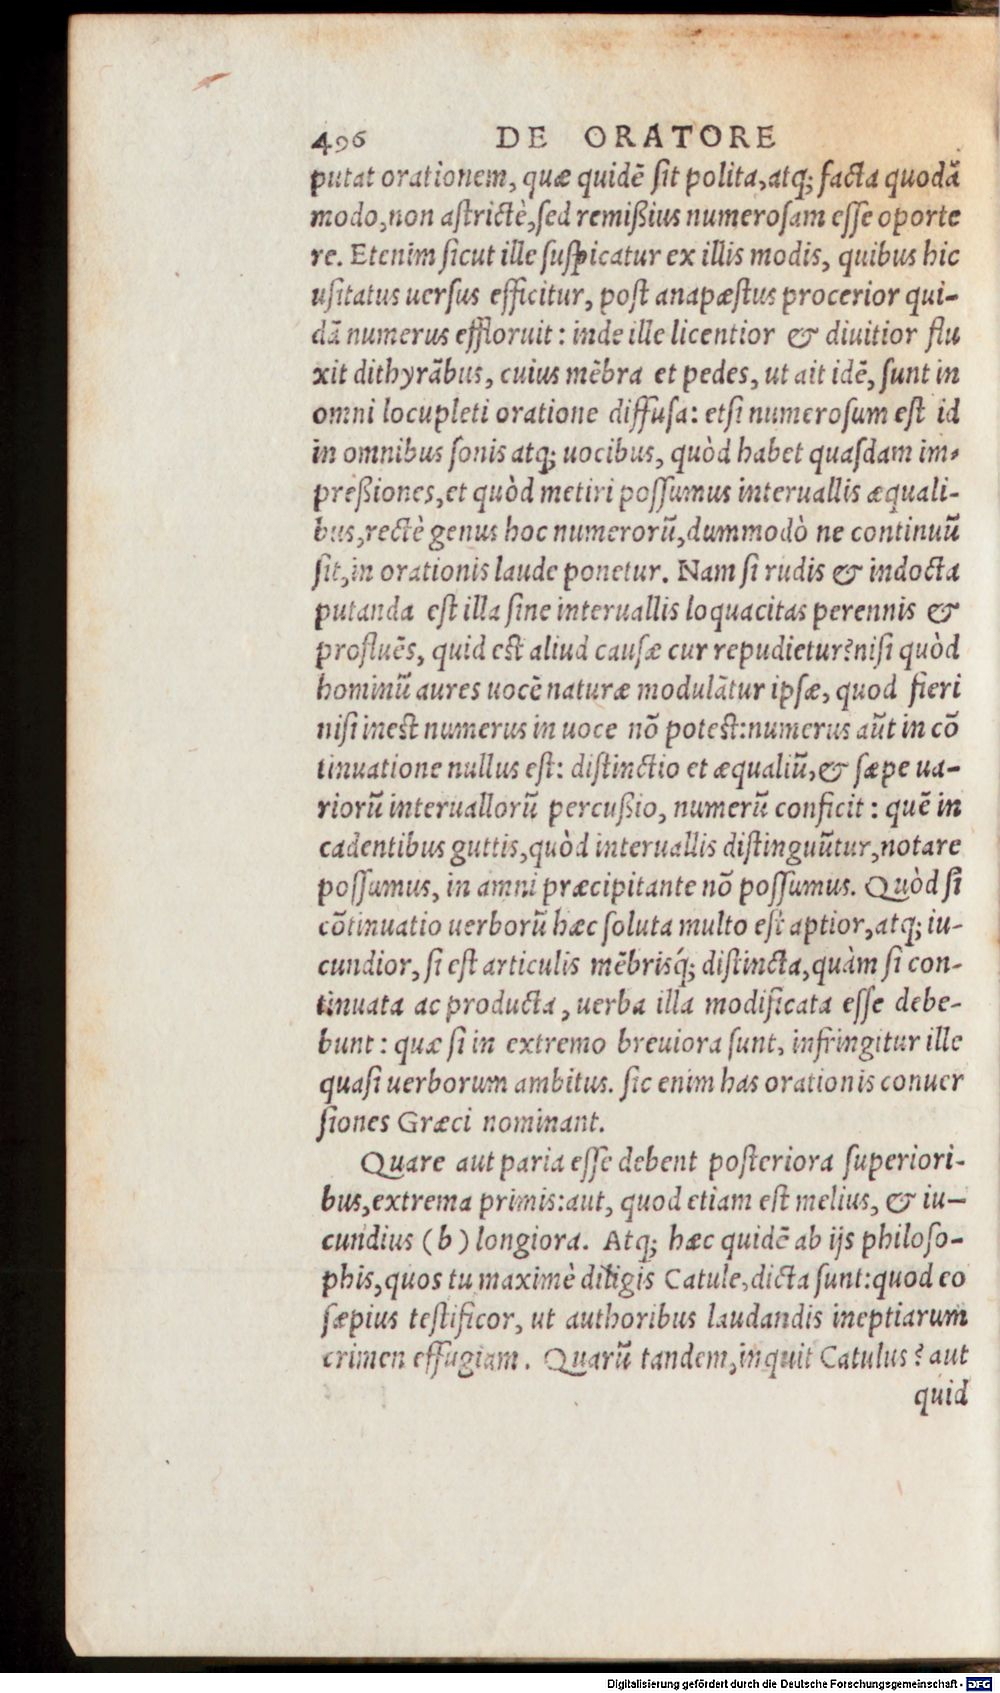 496 DE ORATORE
putat orationem, quæ quidē ſit polita, atq; facta quodā
modo, non aſtrictè, ſed remißius numeroſam eſſe oporte
re. Etenim ſicut ille ſuſpicatur ex illis modis, quibus hic
uſitatus uerſus efficitur, poſt anapæſtus procerior qui-
dā numerus effloruit: inde ille licentior & diuitior flu
xit dithyrābus, cuius mēbra et pedes, ut ait idē, ſunt in
omni locupleti oratione diffuſa: etſi numeroſum eſt id
in omnibus ſonis atq; uocibus, quòd habet quaſdam im-
preßiones, et quòd metiri poſſumus interuallis æquali-
bus, rectè genus hoc numerorū, dummodò ne continuū
ſit, in orationis laude ponetur. Nam ſi rudis & indocta
putanda eſt illa ſine interuallis loquacitas perennis &
profluēs, quid est aliud cauſæ cur repudietur? niſi quòd
hominū aures uocē naturæ modulātur ipſæ, quod fieri
niſi inest numerus in uoce nō potest: numerus aūt in cō
tinuatione nullus eſt: diſtinctio et æqualiū, & ſæpe ua-
riorū interuallorū percußio, numerū conficit: quē in
cadentibus guttis, quòd interuallis diſtinguūtur, notare
poſſumus, in amni præcipitante nō poſſumus. Quòd ſi
cōtinuatio uerborū hæc ſoluta multo eſt aptior, atq; iu-
cundior, ſi eſt articulis mēbrisq́; diſtincta, quàm ſi con-
tinuata ac producta, uerba illa modificata eſſe debe-
bunt: quæ ſi in extremo breuiora ſunt, infringitur ille
quaſi uerborum ambitus. ſic enim has orationis conuer
ſiones Græci nominant.
Quare aut paria eſſe debent poſteriora ſuperiori-
bus, extrema primis: aut, quod etiam eſt melius, & iu-
cundius (b) longiora. Atq; hæc quidē ab ijs philoſo-
phis, quos tu maximè diligis Catule, dicta ſunt: quod eo
ſæpius teſtificor, ut authoribus laudandis ineptiarum
crimen effugiam. Quarū tandem, inquit Catulus? aut
quid
Digitalisierung gefördert durch die Deutsche Forschungsgemeinschaft - DFG